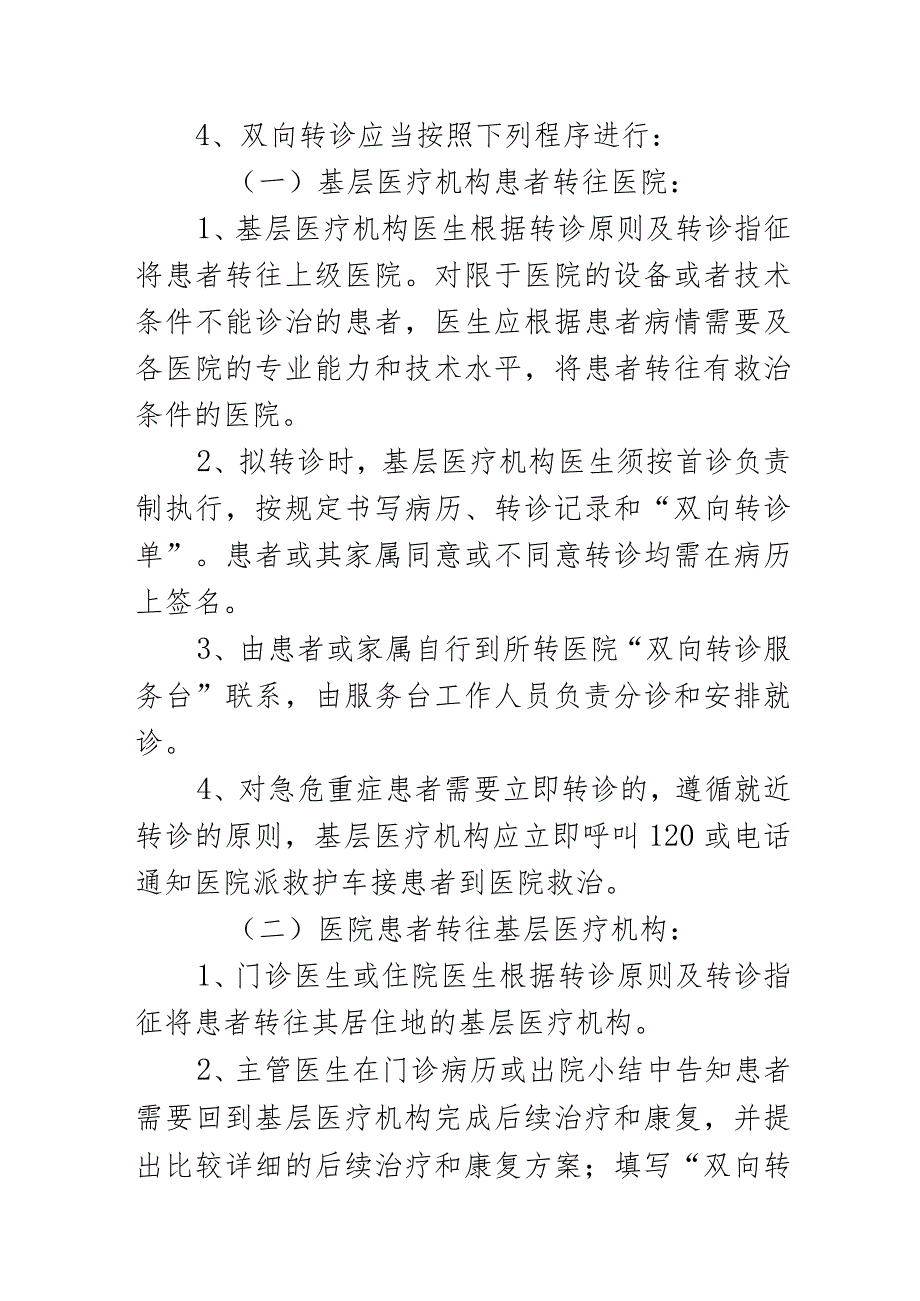 4、双向转诊应当按照下列程序进行：
（一）基层医疗机构患者转往医院：
1、基层医疗机构医生根据转诊原则及转诊指征
将患者转往上级医院。对限于医院的设备或者技术
条件不能诊治的患者，医生应根据患者病情需要及
各医院的专业能力和技术水平，将患者转往有救治
条件的医院。
2、拟转诊时，基层医疗机构医生须按首诊负责
制执行，按规定书写病历、转诊记录和“双向转诊
单”。患者或其家属同意或不同意转诊均需在病历
上签名。
3、由患者或家属自行到所转医院“双向转诊服
务台”联系，由服务台工作人员负责分诊和安排就
诊。
4、对急危重症患者需要立即转诊的，遵循就近
转诊的原则，基层医疗机构应立即呼叫 120 或电话
通知医院派救护车接患者到医院救治。
（二）医院患者转往基层医疗机构：
1、门诊医生或住院医生根据转诊原则及转诊指
征将患者转往其居住地的基层医疗机构。
2、主管医生在门诊病历或出院小结中告知患者
需要回到基层医疗机构完成后续治疗和康复，并提
出比较详细的后续治疗和康复方案；填写“双向转